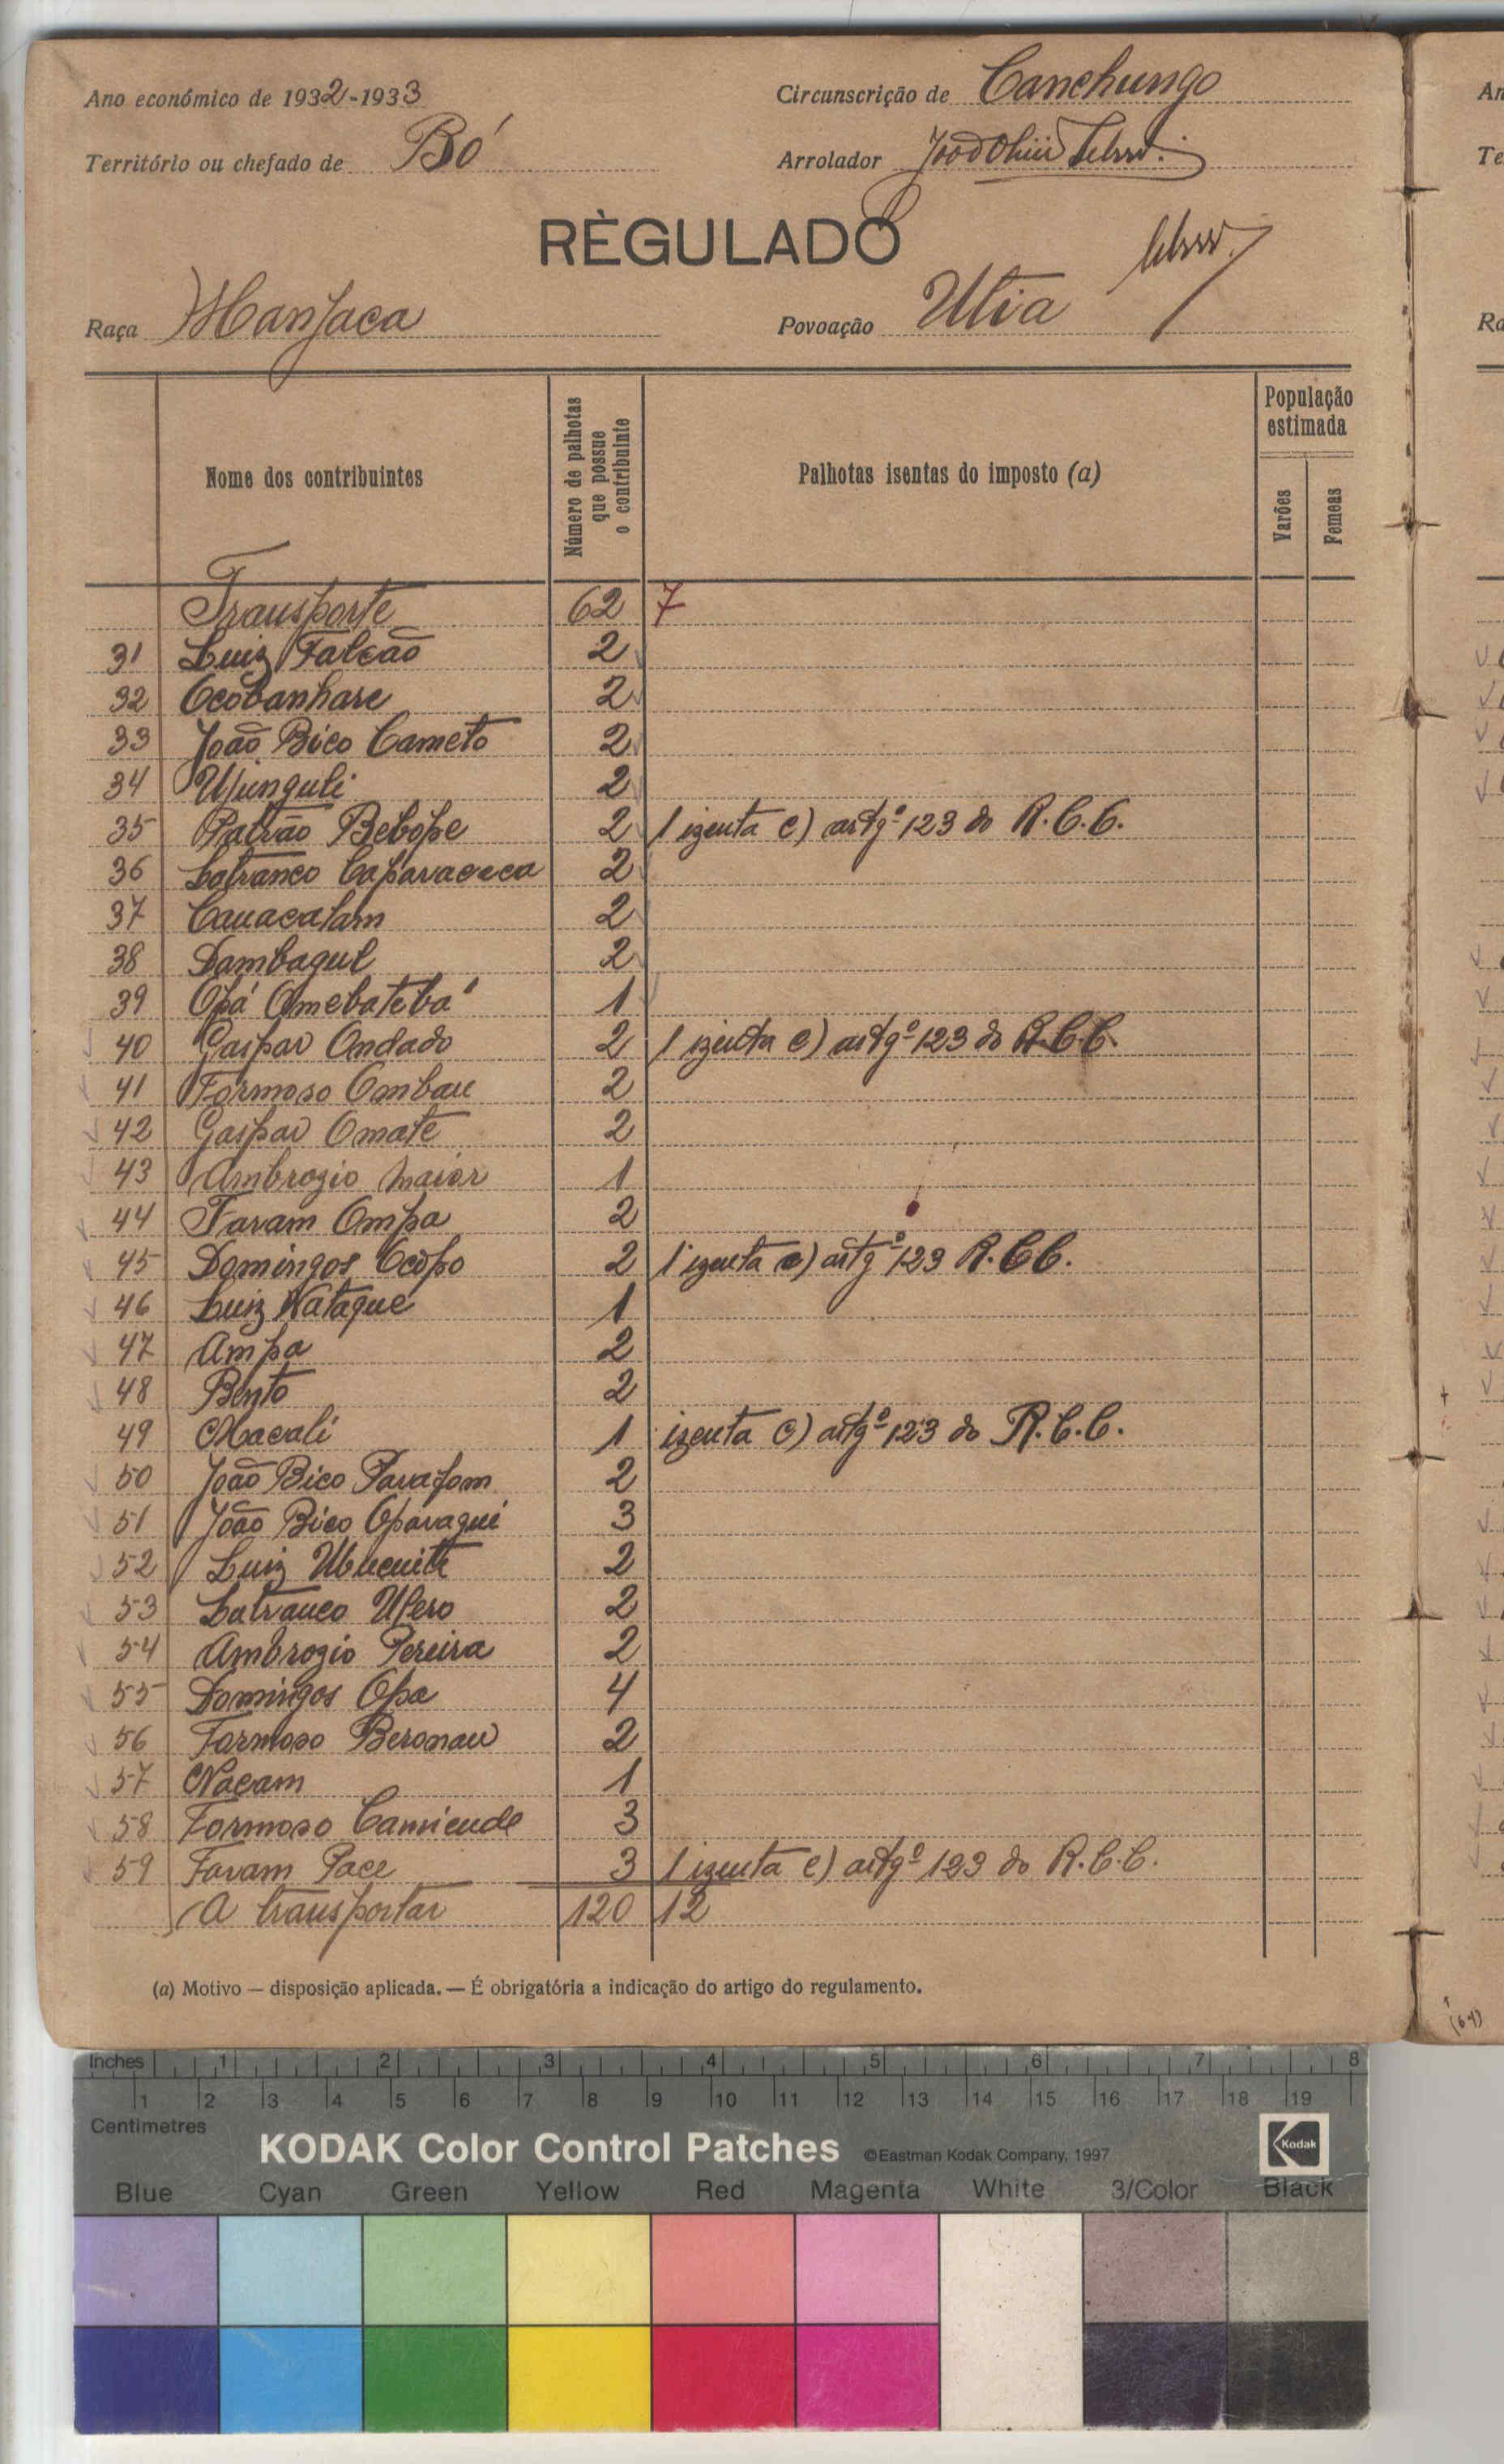 Ano económico de 1932-1933
Circunscrição de Canchungo
Território ou chefado de Bó
Arrolador
RÈGULADO
Raça Manjaca
Povoação Utia
Nome dos contribuintes
Número de palhotas que possue o contribuinte
Palhotas isentas do imposto (a)
População estimada
Varões
Femeas
Transporte 62 7
31 Luiz Falcão 2
32 Ocobanhare 2
33 João Bico Cameto 2
34 Ujunguli 2
35 Patrão Bebope 2 1 izenta c) artgº 123 do R.C.C.
36 Latranco 2
37 Cauacalam 2
38 Dambaqul 2
39 Opá Omebatebá 1
40 Gaspar Ondado 2 1 izenta c) artgº 123 do R.C.C.
41 Formoso Ombau 2
42 Gaspar Omate 2
43 Ambrozio maior 1
44 Favam Ompa 2
45 Domingos Ocopo 2 1 izenta c) artgº 123 R.C.C.
46 Luiz Nataque 1
47 Ampa 2
48 Bento 2
49 Macali 1 izenta c) artgº 123 do R.C.C.
50 João Bico Parafom 2
51 João Bico Oparagui 3
52 Luiz 2
53 Latranco Upero 2
54 Ambrozio Pereira 2
55 Domingos Opa 4
56 Formoso Beronau 2
57 Nacam 1
58 Formoso Camiende 3
59 Favam Pace 3 1 izenta c) artgº 123 do R.C.C.
A transportar 120 12
(a) Motivo — disposição aplicada. — É obrigatória a indicação do artigo do regulamento.
Inches 1 2 3 4 5 6 7 8
1 2 3 4 5 6 7 8 9 10 11 12 13 14 15 16 17 18 19
Centimetres
KODAK Color Control Patches ©Eastman Kodak Company, 1997 Kodak
Blue Cyan Green Yellow Red Magenta White 3/Color Black